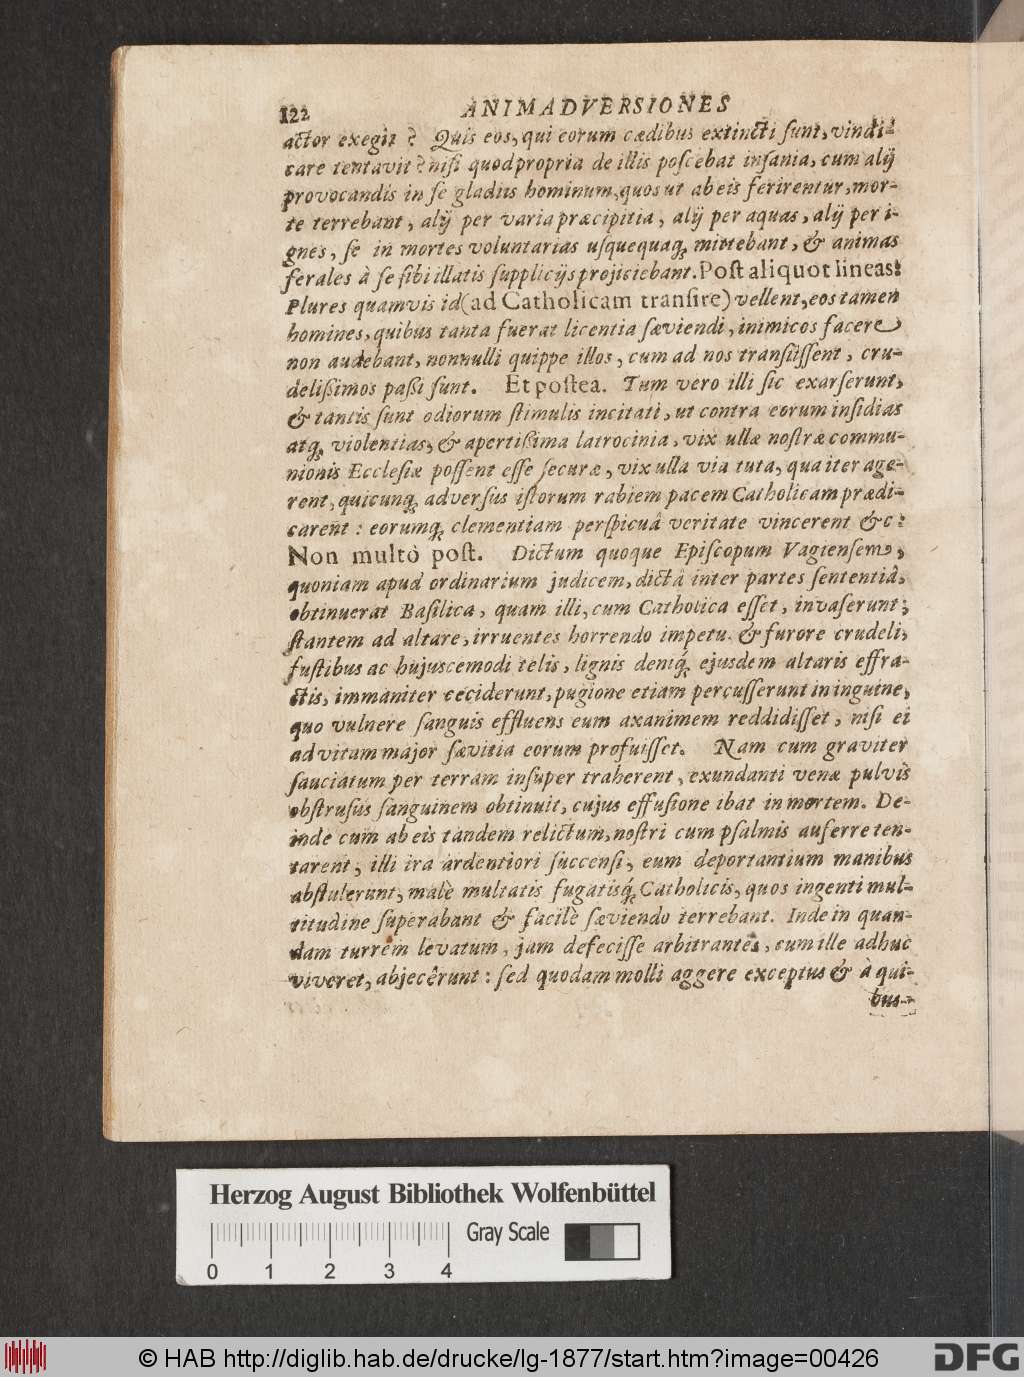 122 ANIMADVERSIONES
actor exegit? Quis eos, qui eorum cædibus extincti ſunt, vindi-
care tentavit? niſi quod propria de illis poſcebat inſania, cum alij
provocandis in ſe gladiis hominum, quos ut ab eis ferirentur, mor-
te terrebant, alij per varia præcipitia, alij per aquas, alij per i-
gnes, ſe in mortes voluntarias uſquequaq; mittebant, & animas
ferales à ſe ſibi illatis ſupplicijs projiciebant. Poſt aliquot lineas:
Plures quamvis id (ad Catholicam tranſire) vellent, eos tamen
homines, quibus tanta fuerat licentia ſæviendi, inimicos facere
non audebant, nonnulli quippe illos, cum ad nos tranſiiſſent, cru-
deliſſimos paſſi ſunt. Et poſtea. Tum vero illi ſic exarſerunt,
& tantis ſunt odiorum ſtimulis incitati, ut contra eorum inſidias
atq; violentias, & apertiſſima latrocinia, vix ullæ noſtræ commu-
nionis Eccleſiæ poſſent eſſe ſecuræ, vix ulla via tuta, qua iter age-
rent, quicunq; adverſus iſtorum rabiem pacem Catholicam prædi-
carent: eorumq; clementiam perſpicuâ veritate vincerent &c:
Non multò poſt. Dictum quoque Epiſcopum Vagienſem,
quoniam apud ordinarium judicem, dictâ inter partes ſententiâ,
obtinuerat Baſilica, quam illi, cum Catholica eſſet, invaſerunt;
ſtantem ad altare, irruentes horrendo impetu & furore crudeli,
fuſtibus ac hujuscemodi telis, lignis deniq; ejusdem altaris effra-
ctis, immaniter ceciderunt, pugione etiam percuſſerunt in inguine,
quo vulnere ſanguis effluens eum axanimem reddidiſſet, niſi ei
ad vitam major ſævitia eorum profuiſſet. Nam cum graviter
ſauciatum per terram inſuper traherent, exundanti venæ pulvis
obſtruſus ſanguinem obtinuit, cujus effuſione ibat in mortem. De-
inde cum ab eis tandem relictum, noſtri cum pſalmis auferre ten-
tarent, illi ira ardentiori ſuccenſi, eum deportantium manibus
abſtulerunt, malè multatis fugatisq; Catholicis, quos ingenti mul-
titudine ſuperabant & facilè ſæviendo terrebant. Inde in quan-
dam turrem levatum, jam defeciſſe arbitrantes, cum ille adhuc
viveret, abjecêrunt: ſed quodam molli aggere exceptus & à qui-
bus-
Herzog August Bibliothek Wolfenbüttel
Gray Scale
0 1 2 3 4
© HAB http://diglib.hab.de/drucke/lg-1877/start.htm?image=00426
DFG